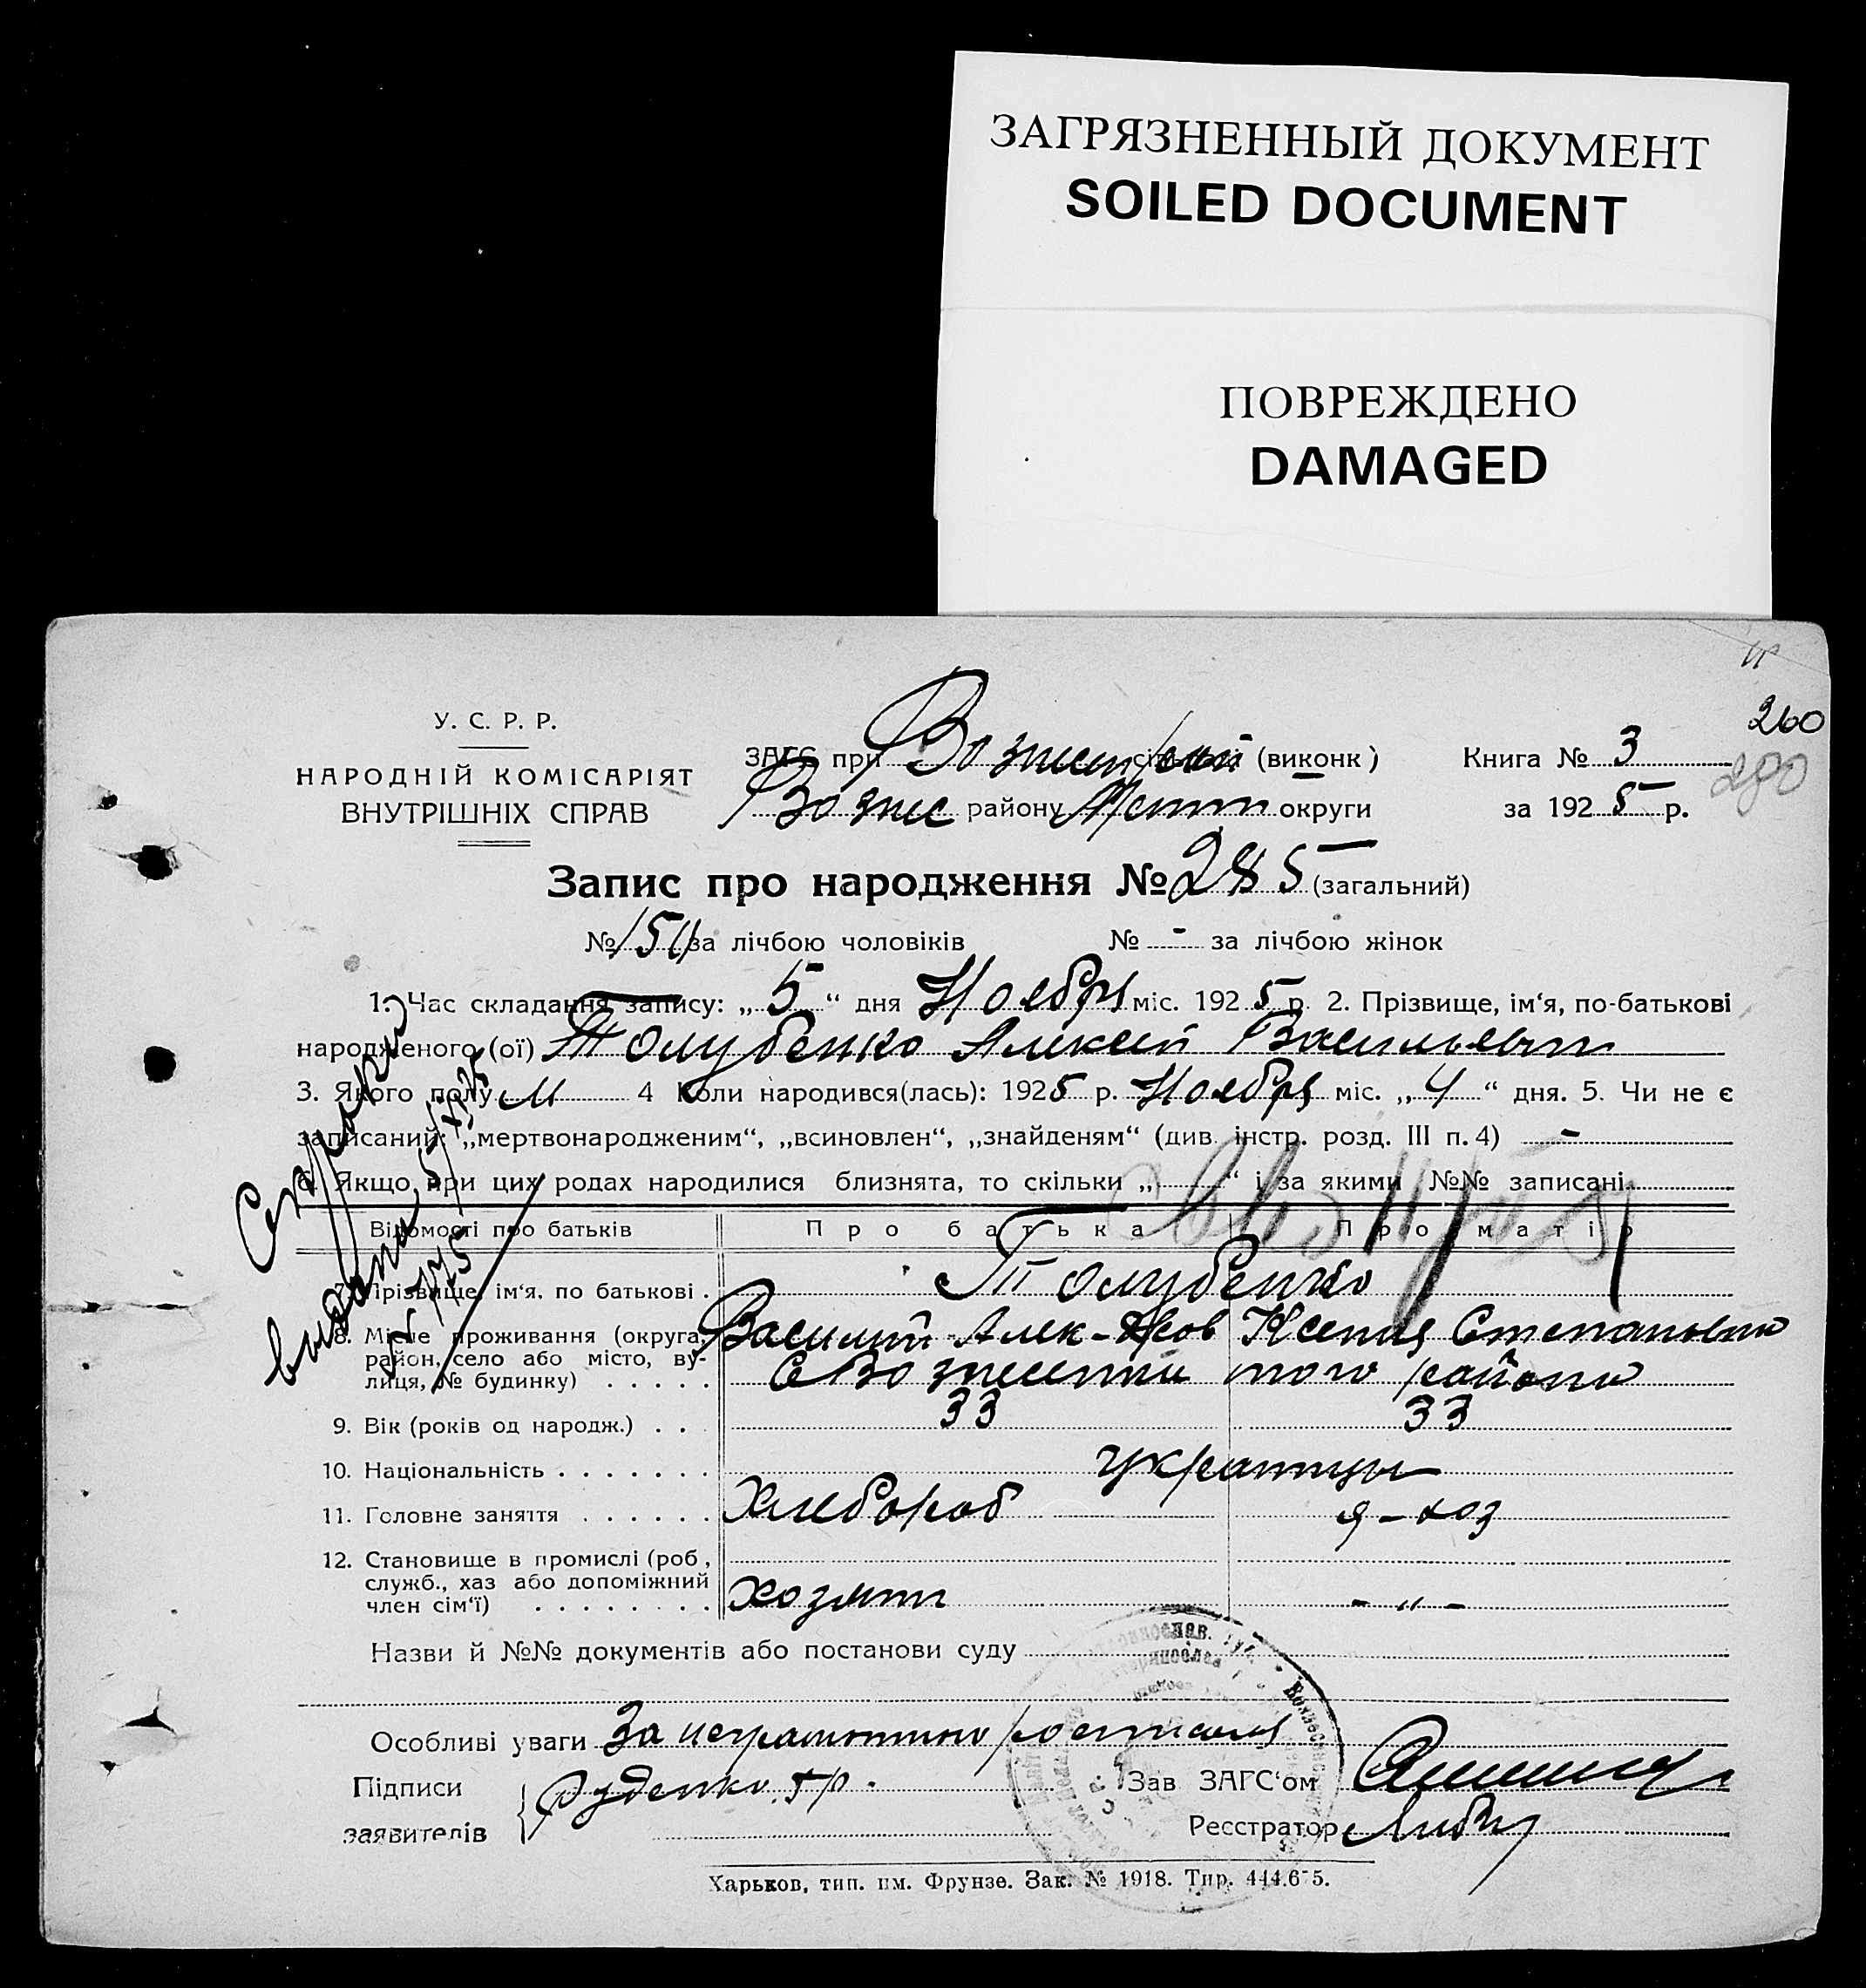 ЗАГРЯЗНЕННЫЙ ДОКУМЕНТ
SOILED DOCUMENT
ПОВРЕЖДЕНО
DAMAGED
260
280
У. С. Р. Р.
НАРОДНІЙ КОМІСАРІЯТ
ВНУТРІШНІХ СПРАВ
ЗАГС при (виконк)
Вознес району округи
Книга № 3
за 1925 р.
Запис про народження № 285 (загальний)
№ 150 за лічбою чоловіків № - за лічбою жінок
1. Час складання запису: „5“ дня Ноября міс. 1925 р. 2. Прізвище, ім‘я, по-батькові
народженого (ої) Толубенко Алексей Васильевич
3. Якого полу М 4 Коли народився(лась): 1925 р. Ноября міс. „4“ дня. 5. Чи не є
записаний: „мертвонародженим“, „всиновлен“, „знайденям“ (див. інстр. розд. III п. 4) -
6. Якщо при цих родах народилися близнята, то скільки „ “ і за якими №№ записані
Відомості про батьків Про батька Про матір
7. Прізвище, ім‘я, по батькові . Толубенко
Василий Ксения Степановна
8. Місце проживання (округа,
район, село або місто, ву-
лиця, № будинку) . . . . . того района
9. Вік (років од народж.) . . . 33 33
10. Національність . . . . . . . украинцы
11. Головне заняття . . . . . . Хлебороб д-хоз
12. Становище в промислі (роб,
служб., хаз або допоміжний
член сім‘ї) . . . . . . . . Хозяин - „ -
Назви й №№ документів або постанови суду
Особливі уваги За неграмотного росписался
Підписи
заявителів
Руденко Гр.
Зав ЗАГС‘ом
Реєстратор
Харьков, тип. им. Фрунзе. Зак. № 1918. Тир. 444.675.